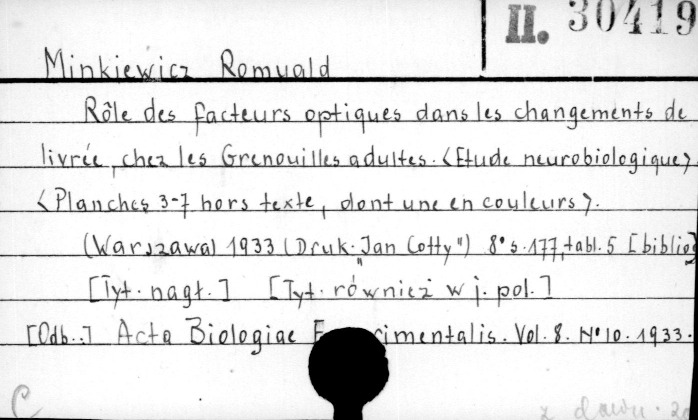 II. 30419
Minkiewicz Romuald
Rôle des facteurs optiques dans les changements de
livrée, chez les Grenouilles adultes. <Etude neurobiologique>.
<Planches 3-7 hors texte, dont une en couleurs>.
(Warszawa) 1933 (Druk. "Jan Cotty") 8° s. 177, tabl. 5 [bibliog
[Tyt. nagł.] [Tyt. również w j. pol.]
[Odb.:] Acta Biologiae E imentalis. Vol. 8. N°10. 1933.
C
z dawn.